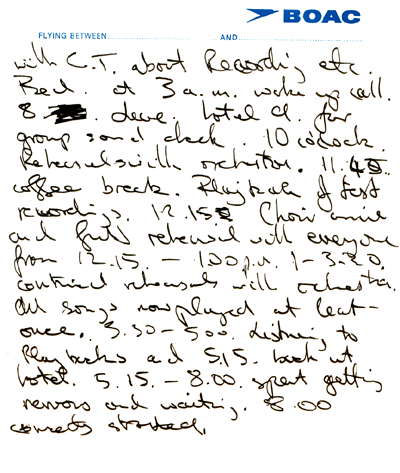 BOAC
FLYING BETWEEN AND
with C.T. about Recording etc.
Bed. at 3 a.m. wake up call.
8 hotel for
group sound check. 10 o'clock.
Rehearsals with orchestra. 11.45
coffee break. Playback of test
recordings. 12.15 Choir arrive
and full rehearsal with everyone
from 12.15. - 1.00 p.m. 1 - 3.30.
continued rehearsals with orchestra.
All songs now played at least
once. 3.30 - 5.00. Listening to
Playbacks and 5.15. back at
hotel. 5.15. - 8.00. spent getting
nervous and waiting. 8.00
concerts started.